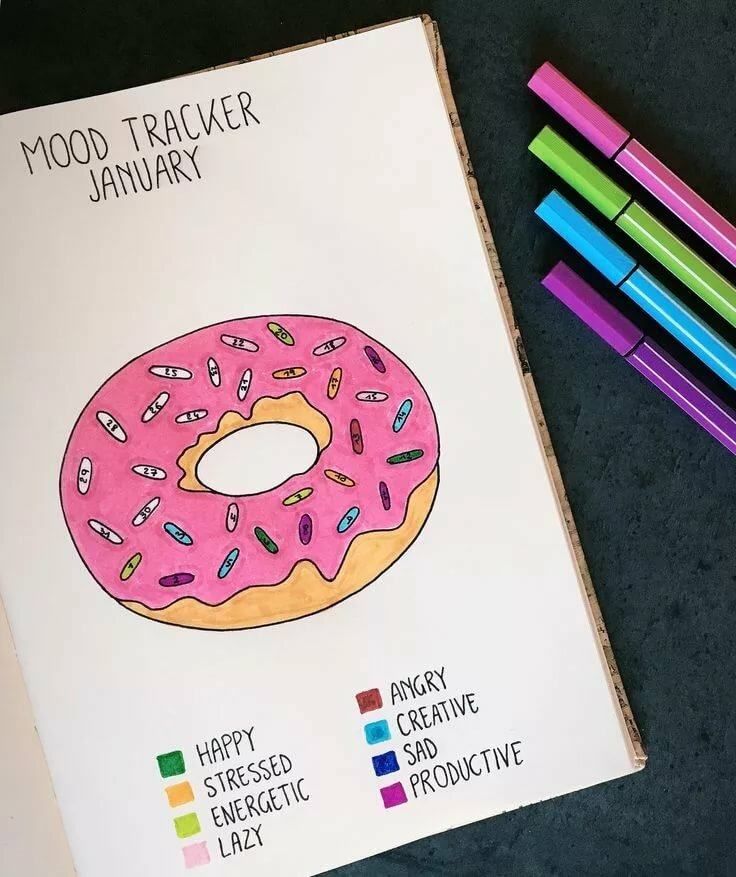 MOOD TRACKER
JANUARY
20
22
18
25
23
21
19
17
26
24
15
14
28
13
12
29
27
10
11
30
31
9
HAPPY
STRESSED
ENERGETIC
LAZY
ANGRY
CREATIVE
SAD
PRODUCTIVE